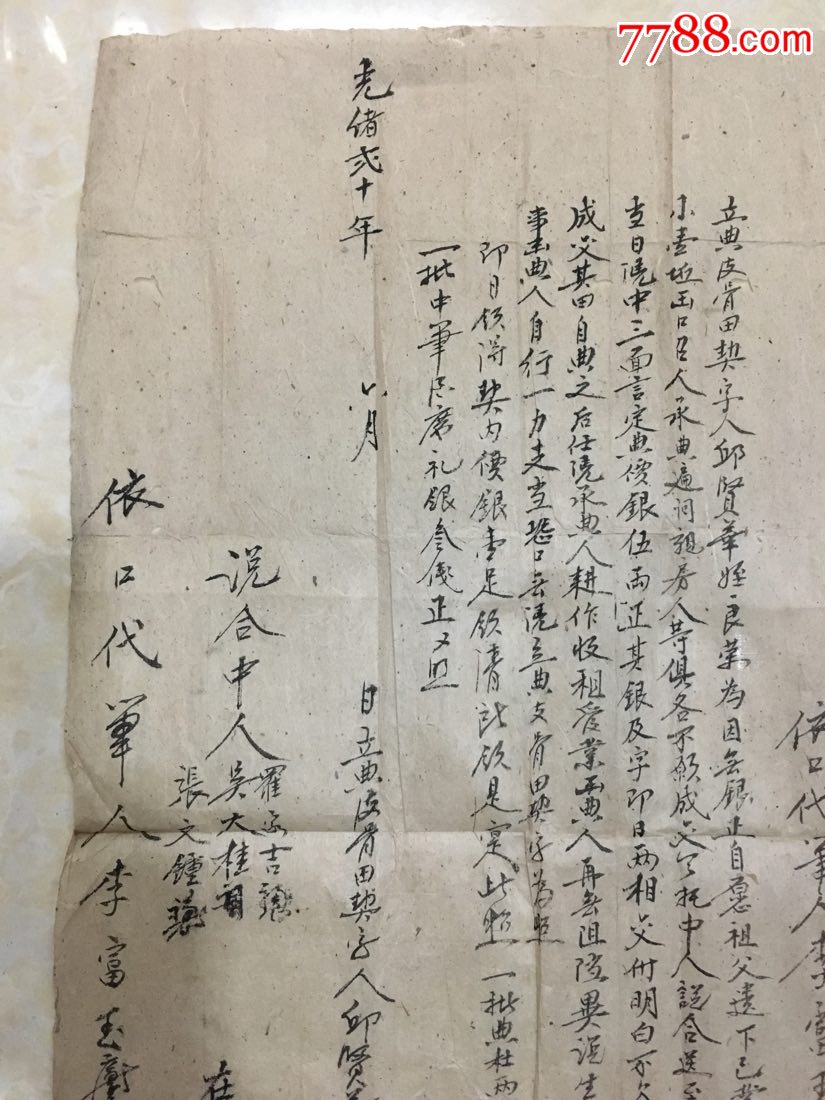 7788.com
依口代筆人李富玉
立典皮骨田契字人邱賢華姪良荣為因無銀正自愿祖父遗下已
小壹坵出口召人承典遍问親房人等俱各不願成交托中人説合送至
当日凭中三面言定典價銀伍両正其銀及字即日両相交付明白不欠
成交其田自典之后任凭承典人耕作收租管業出典人再無阻险異说生
事出典人自行一力支当恐口無凭立典皮骨田契字為照
即日领得契内價銀壹足领清訖领是寔此照 一批典杜両
一批中筆居席礼銀叁錢正又照
光绪弍十年 八月 日立典皮骨田契字人邱賢華
说合中人
羅 吉
吳大桂
張文鍾
在
依口代筆人李富玉